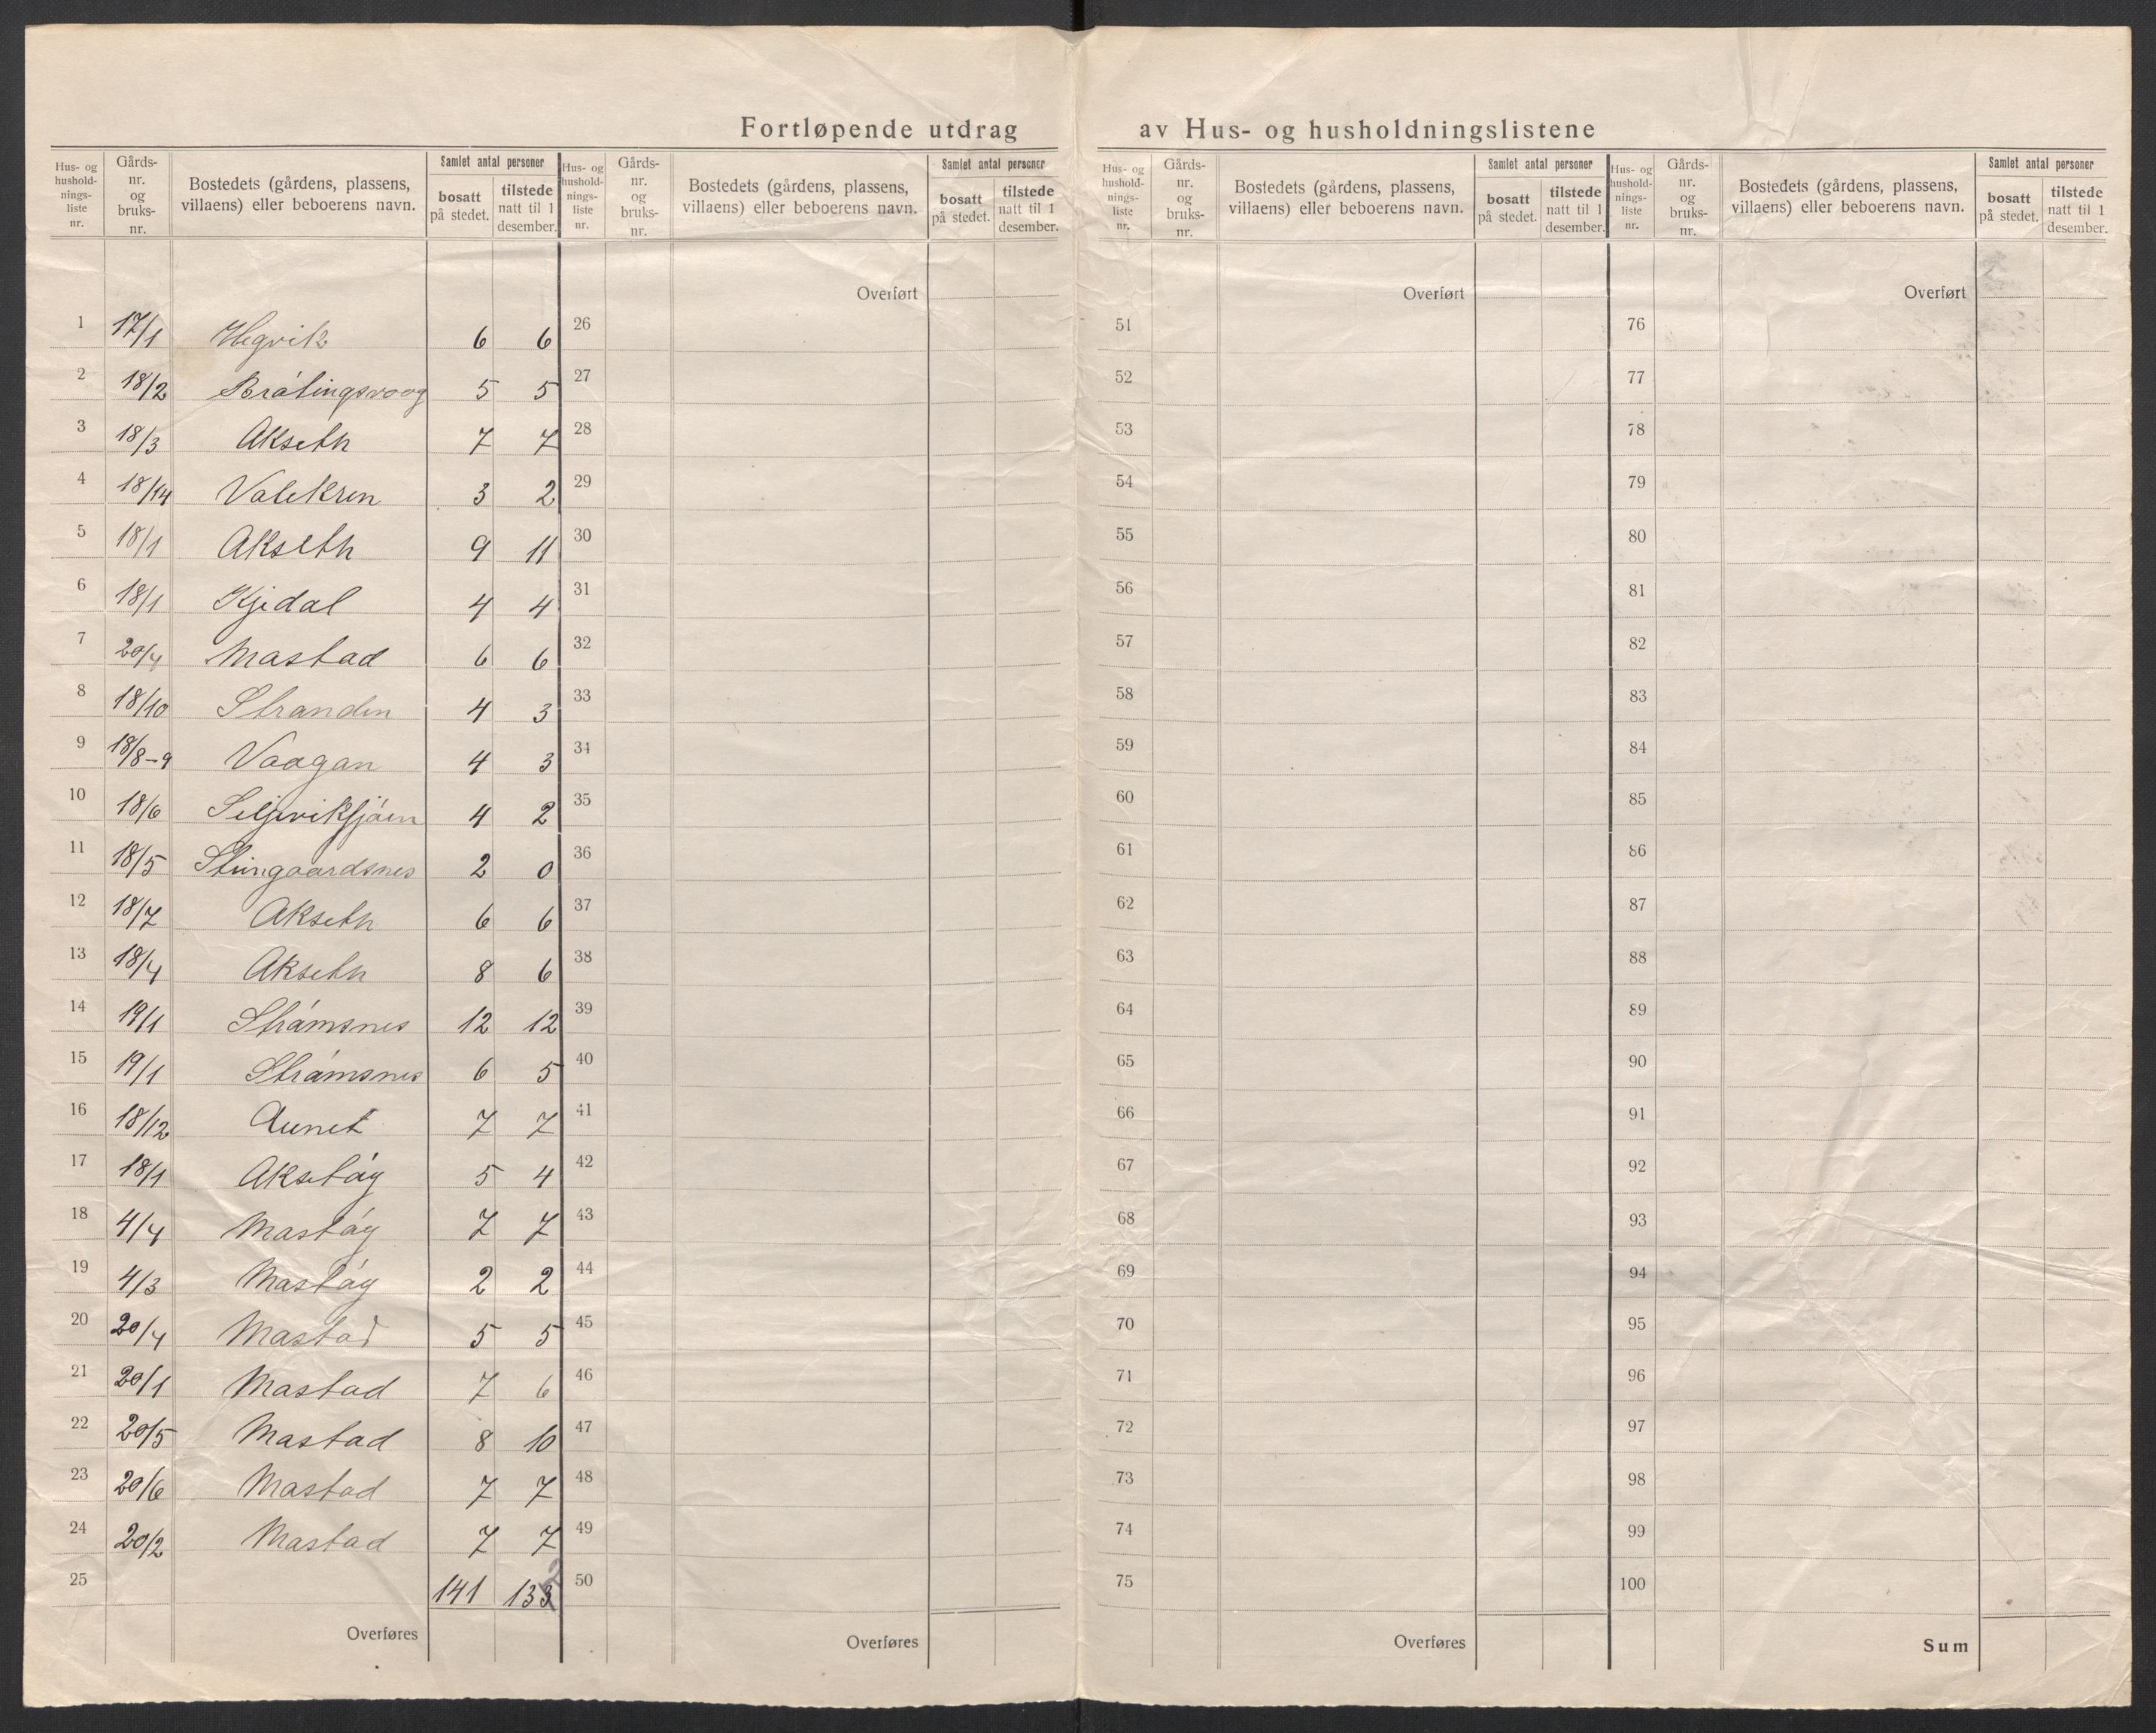 Fortløpende utdrag av Hus- og husholdningslistene
Hus- og hushold- nings- liste nr. | Gårds- nr. og bruks- nr. | Bostedets (gårdens, plassens, villaens) eller beboerens navn. | Samlet antal personer | bosatt på stedet. | tilstede natt til 1 desember.
Hus- og hushold- nings- liste nr. | Gårds- nr. og bruks- nr. | Bostedets (gårdens, plassens, villaens) eller beboerens navn. | Samlet antal personer | bosatt på stedet. | tilstede natt til 1 desember.
Hus- og hushold- nings- liste nr. | Gårds- nr. og bruks- nr. | Bostedets (gårdens, plassens, villaens) eller beboerens navn. | Samlet antal personer | bosatt på stedet. | tilstede natt til 1 desember.
Hus- og hushold- nings- liste nr. | Gårds- nr. og bruks- nr. | Bostedets (gårdens, plassens, villaens) eller beboerens navn. | Samlet antal personer | bosatt på stedet. | tilstede natt til 1 desember.
Overført Overført Overført
1 17/1 Hegvik 6 6 26 51 76
2 18/2 5 5 27 52 77
3 18/3 Akseth 7 7 28 53 78
4 18/14 Valekren 3 2 29 54 79
5 18/1 Akseth 9 11 30 55 80
6 18/1 Kjedal 4 4 31 56 81
7 20/4 Mastad 6 6 32 57 82
8 18/10 Stranden 4 3 33 58 83
9 18/8-9 Vaagan 4 3 34 59 84
10 18/6 4 2 35 60 85
11 18/5 Steingaardsnes 2 0 36 61 86
12 18/7 Akseth 6 6 37 62 87
13 18/4 Akseth 8 6 38 63 88
14 19/1 Strámsnes 12 12 39 64 89
15 19/1 Strámsnes 6 5 40 65 90
16 18/12 Aunet 7 7 41 66 91
17 18/1 Aksetáy 5 4 42 67 92
18 4/4 Mastáy 7 7 43 68 93
19 4/3 Mastáy 2 2 44 69 94
20 20/4 Mastad 5 5 45 70 95
21 20/1 Mastad 7 6 46 71 96
22 20/5 Mastad 8 10 47 72 97
23 20/6 Mastad 7 7 48 73 98
24 20/2 Mastad 7 7 49 74 99
25 141 133 50 75 100
Overføres Overføres Overføres Sum